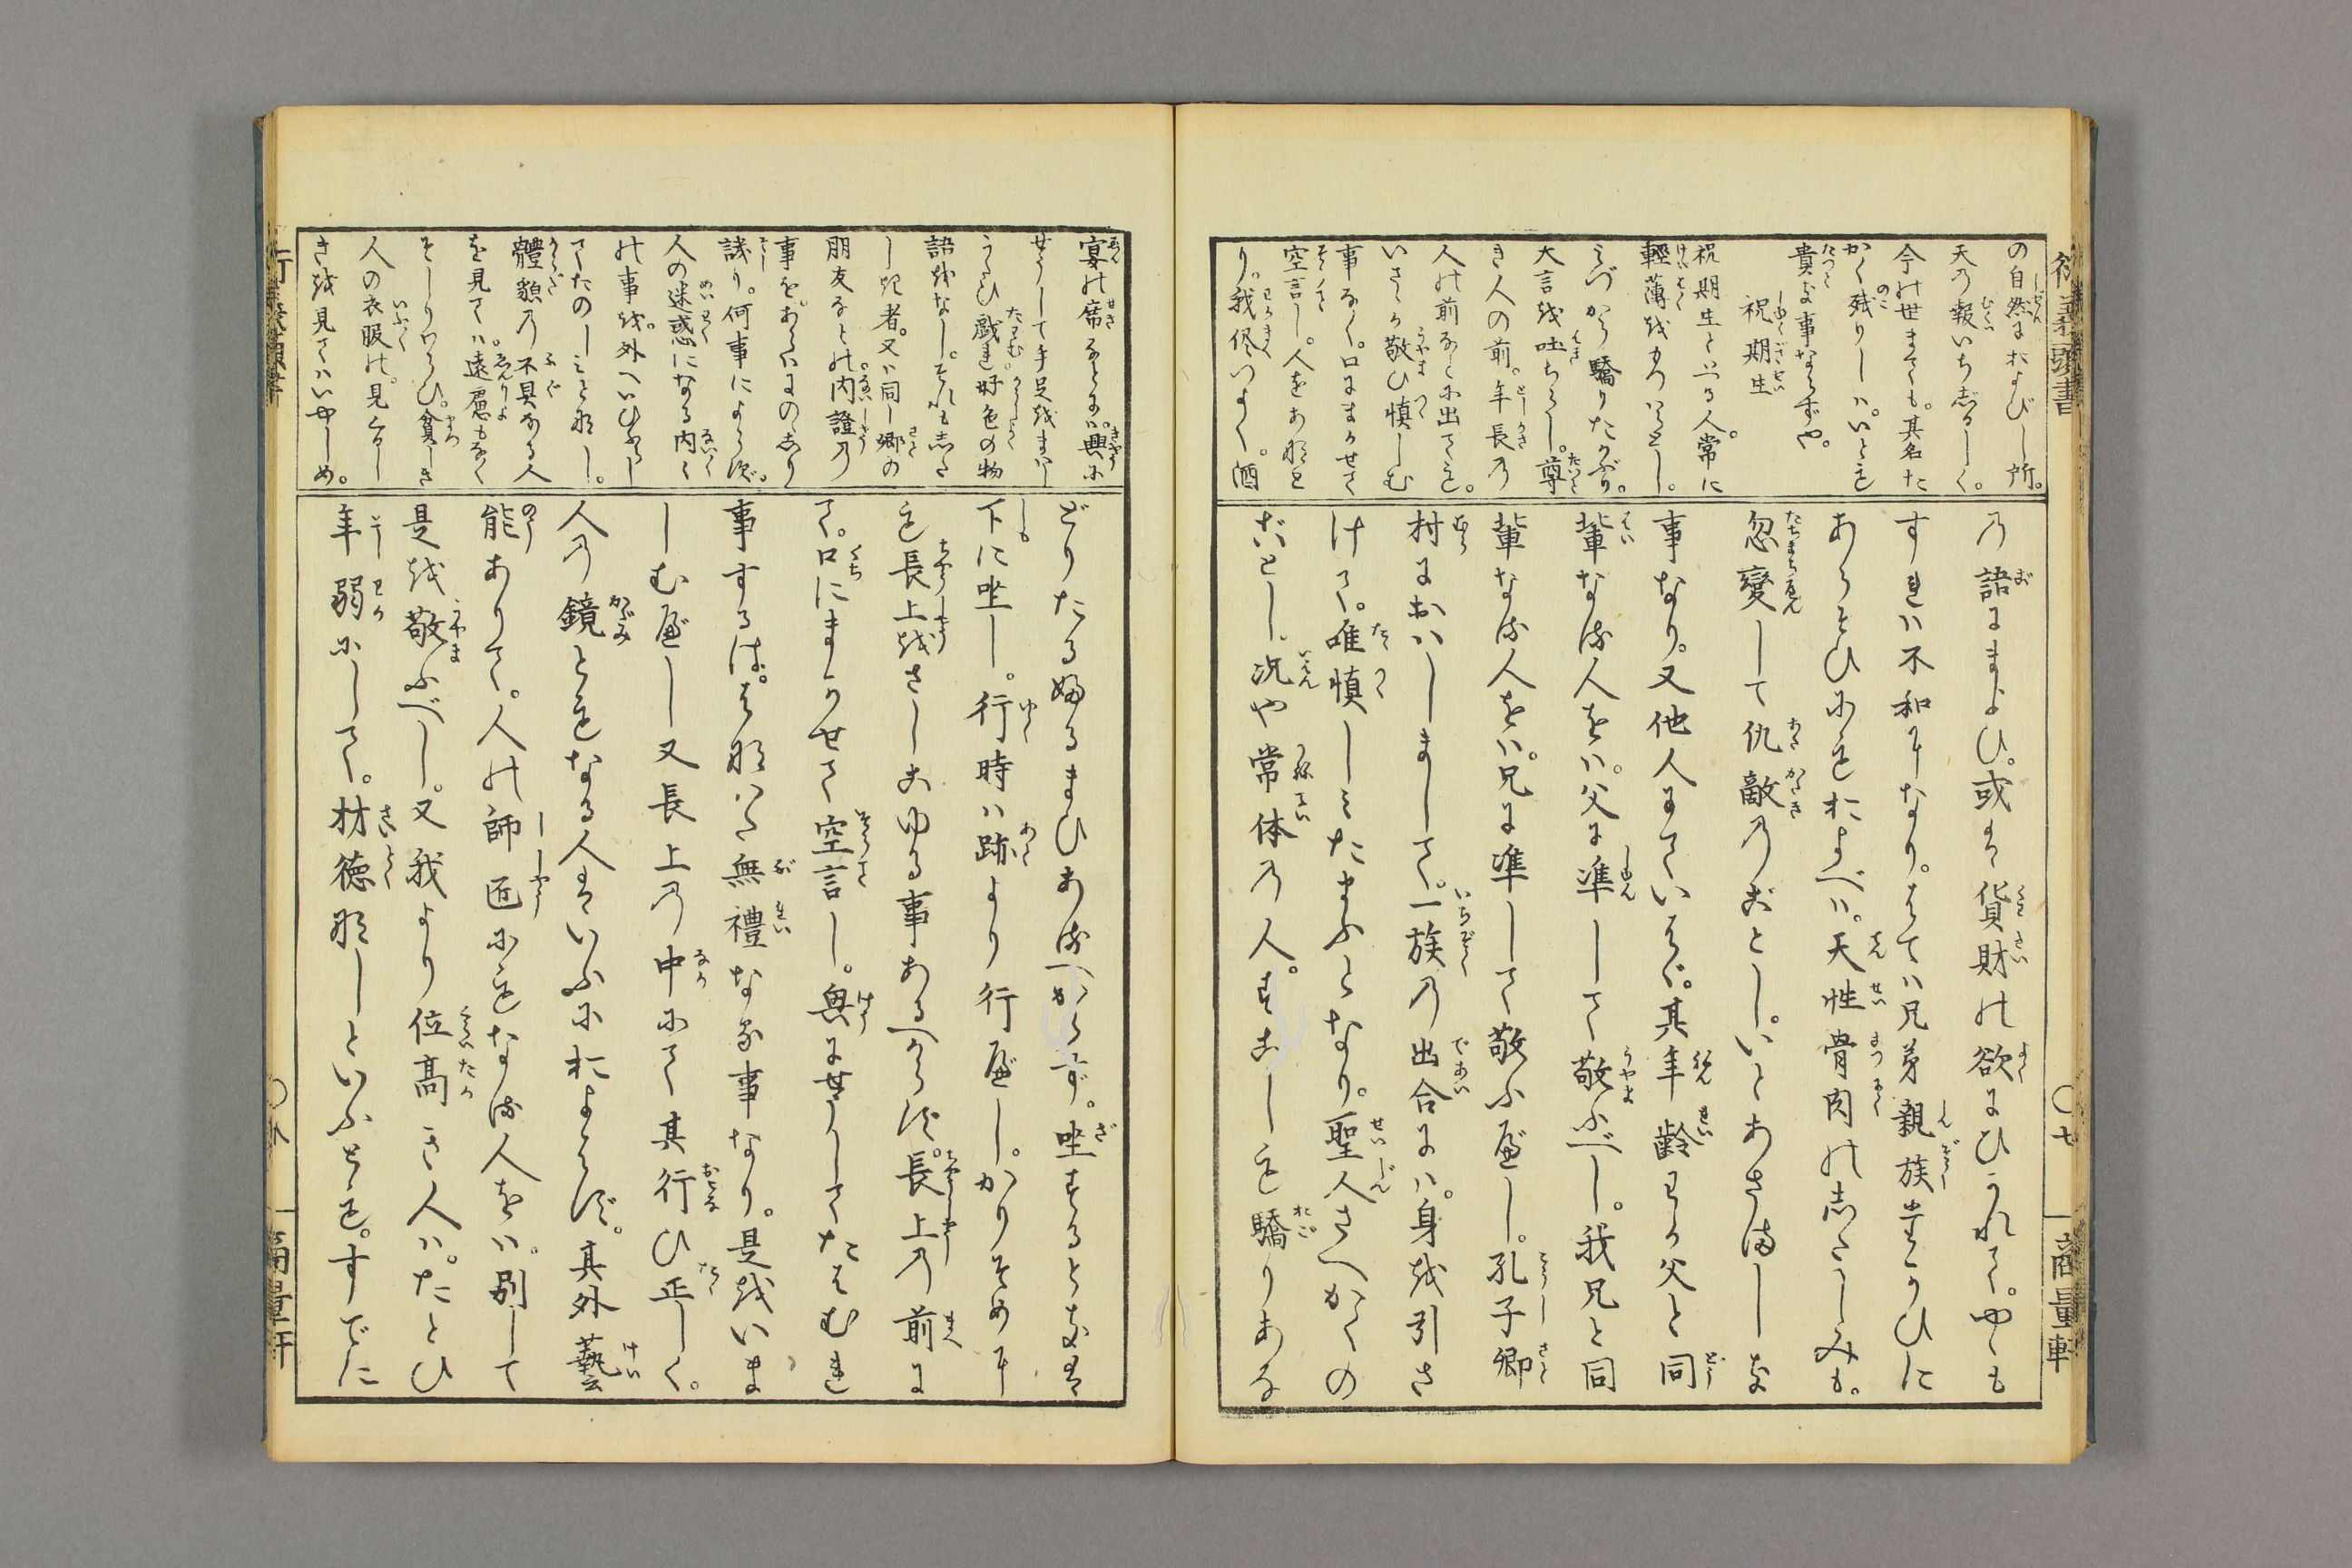 の自然におよびし所。
天の報いちじるしく。
今の世までも。其名た
かく残りしハ。いとも
貴き事ならずや。
祝期生
祝期生といふ人。常に
輕薄をおこなひとし。
みづから驕りたかぶり。
大言を吐ちらし。尊
き人の前。年長の
人の前などに出ても。
いさゝか敬ひ慎しむ
事なく。口にまかせて
空言し。人をあなど
り。我侭いふて。酒
の語にまよひ。或は貨財の欲にひかれて。やゝも
すれハ不和になり。はてハ兄弟親族たがひに
あらそひにもおよべハ。天性骨肉のしたしみも。
忽變して仇敵のごとし。いとあさましき
事なり。又他人にていはゞ。其年齢わが父と同
輩なる人をハ。父に準して敬ふべし。我兄と同
輩なる人をハ。兄に準して敬ふべし。孔子郷
村におハしまして。一族の出合にハ。身を引さ
げて。唯慎しみたまふとなり。聖人さへかくの
ごとし。况や常体の人。すこしも驕りあな
宴の席などに。興に
せうして手足をまハし
うたひ戯れ。好色の物
語をなし。それもした
しき者。又ハ同し郷の
朋友などの。内證の
事を。あらハにのゝしり
譏り。何事によらず。
人の迷惑になる内々
の事を。外へいひふらし
てたのしみとなし。
體貌の不具なる人
を見てハ。遠慮もなく
そしりわらひ。貧しき
人の衣服の。見ぐるし
きを見てハいやしめ。
どりたる婦るまひあるべからず。坐するときは
下に坐し。行時ハ跡より行べし。かりそめに
も長上をさしこゆる事あるべからず。長上の前に
て。口にまかせて空言し。興にせうしてたはむれ
事するは。はなハだ無禮なる事なり。是をいま
しむべし又長上の中にて其行ひ正しく。
人の鏡ともなる人はいふにおよばず。其外藝
能ありて。人の師匠にもなる人をハ。別して
是を敬ふべし。又我より位高き人ハ。たとひ
年弱にして。材徳なしといふとも。すでに
○七
商量軒